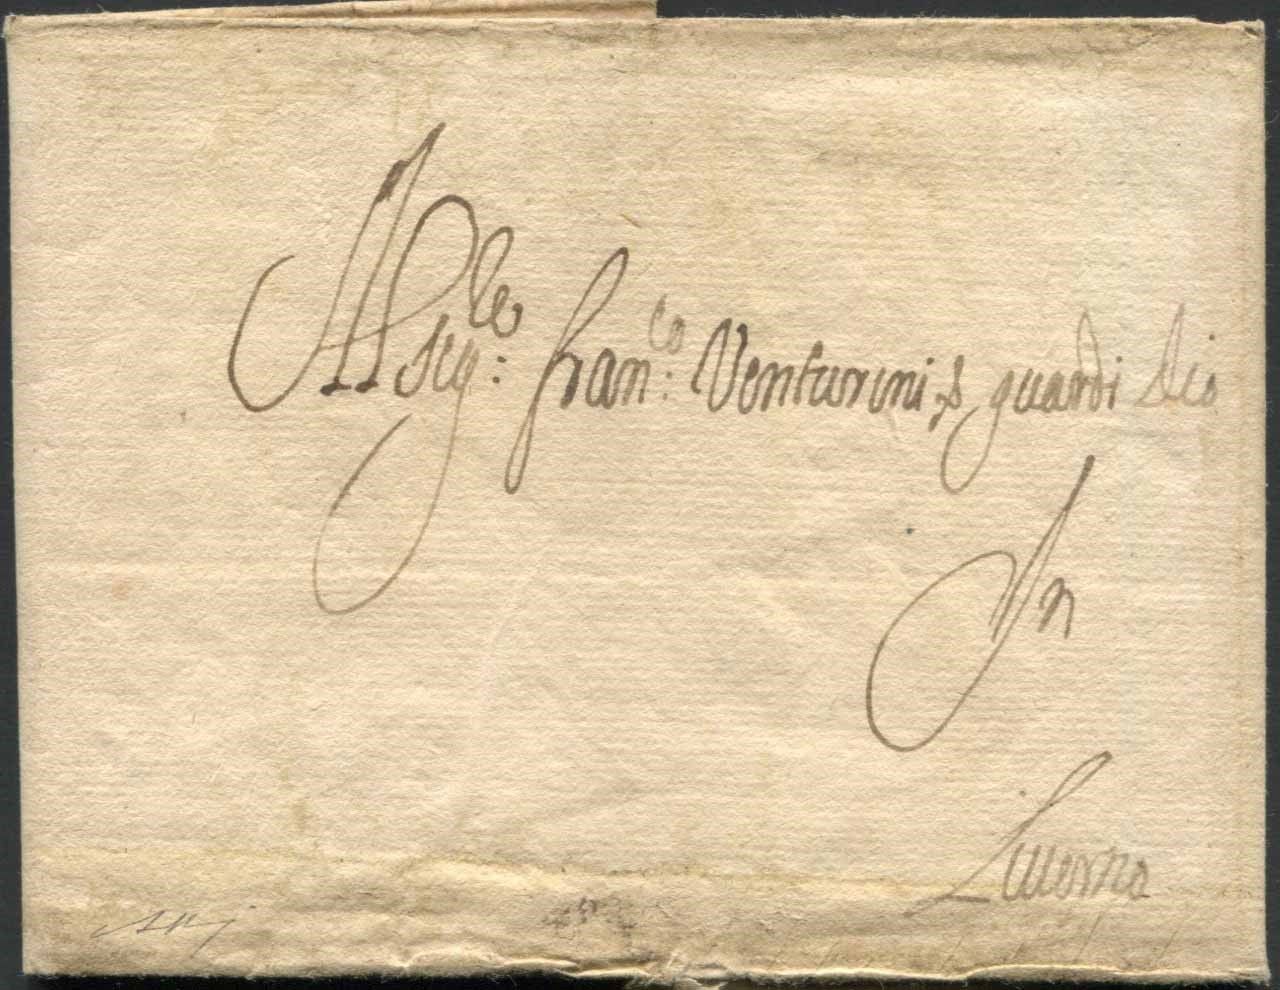 Al Sig:le Fran:co Venturini guardi Dio
In
Liuorno